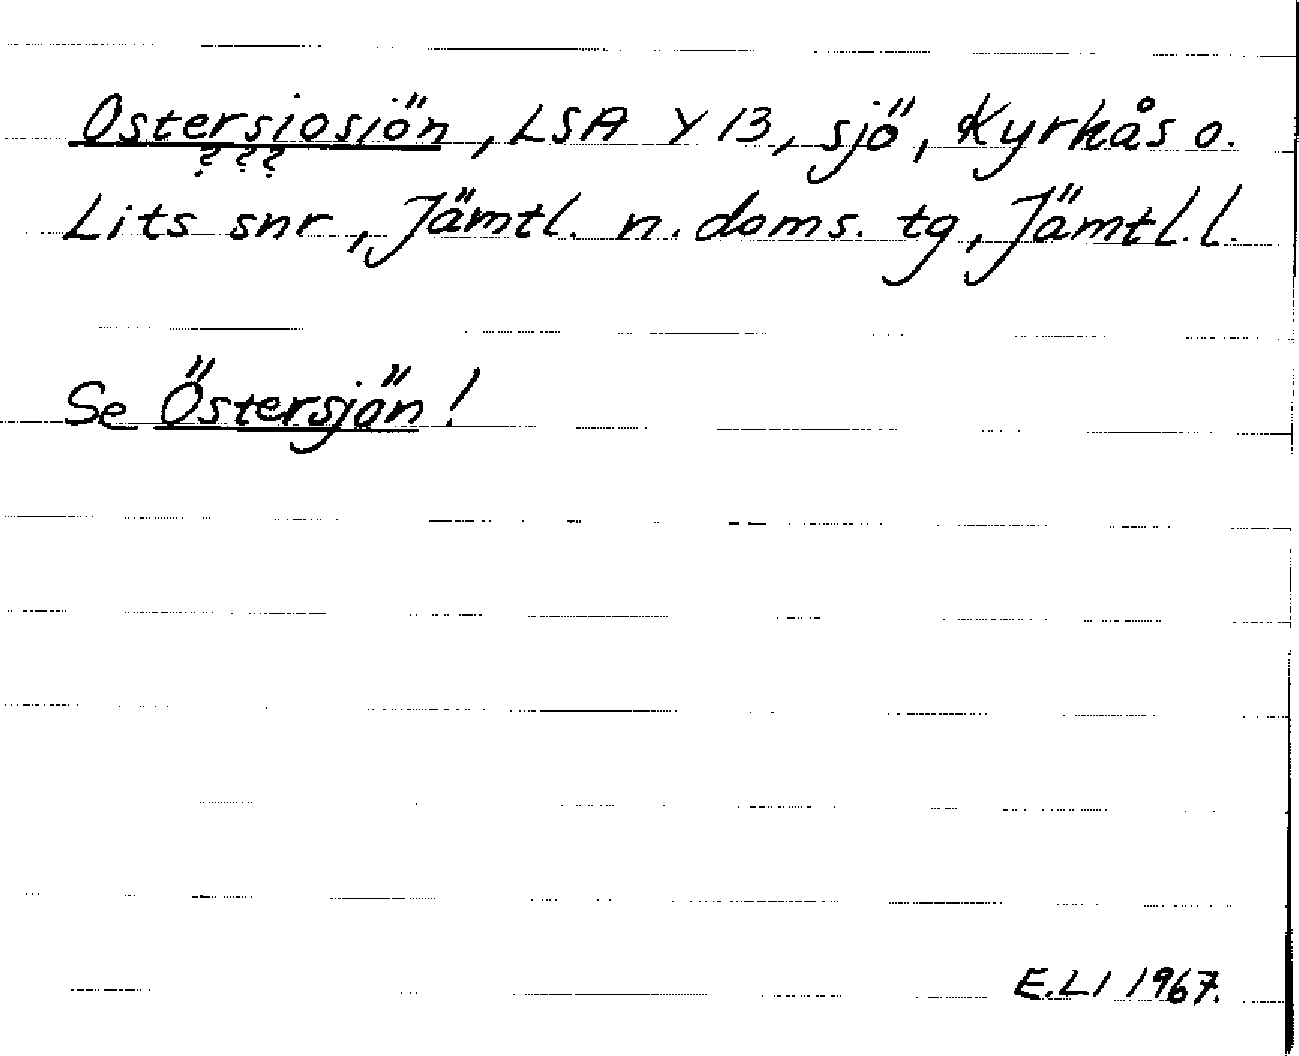 Ostersiosiön, LSA Y 13, sjö, Kyrkås o.
? ? ?
Lits snr, Jämtl. n. doms. tg, Jämtl. l.
Se Östersjön!
E.LI 1967.